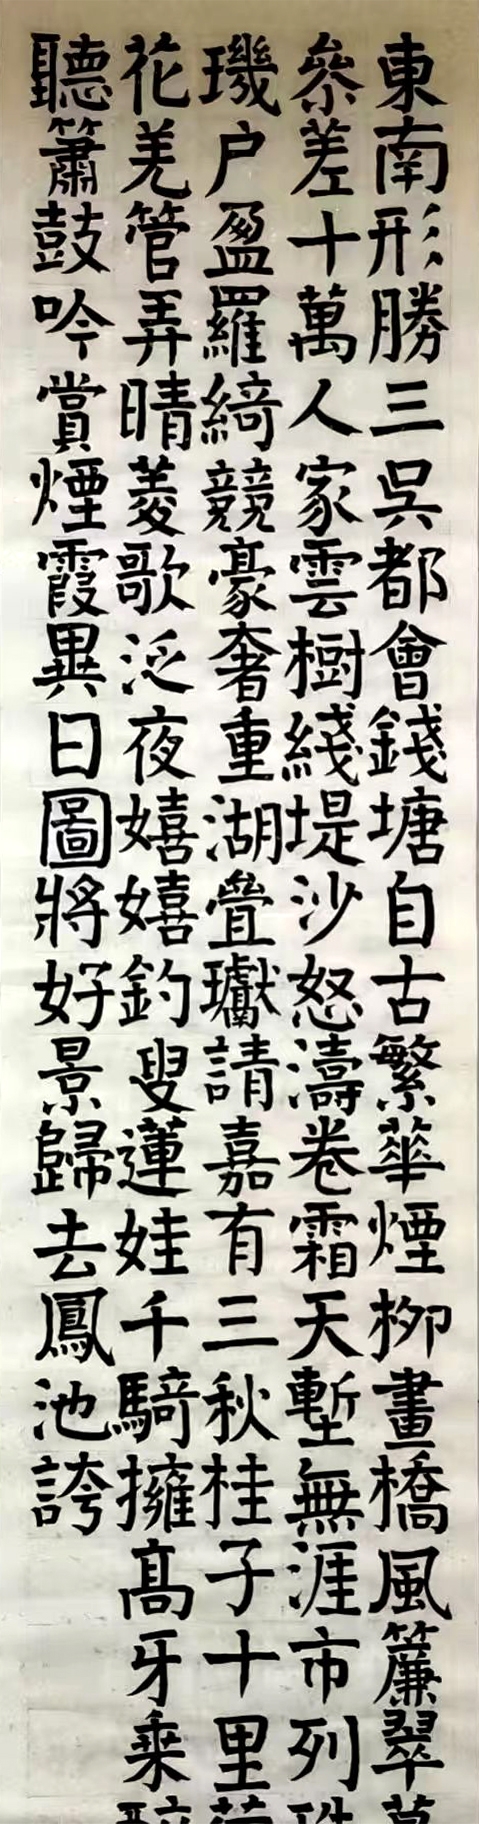 東南形勝三吳都會錢塘自古繁華煙柳畫橋風簾翠
參差十萬人家雲樹綫堤沙怒濤卷霜天塹無涯市列
璣户盈羅綺競豪奢重湖疊瓛請嘉有三秋桂子十里
花羌管弄晴菱歌泛夜嬉嬉釣叟蓮娃千騎擁高牙乘
聽簫鼓吟賞煙霞異日圖將好景歸去鳳池誇